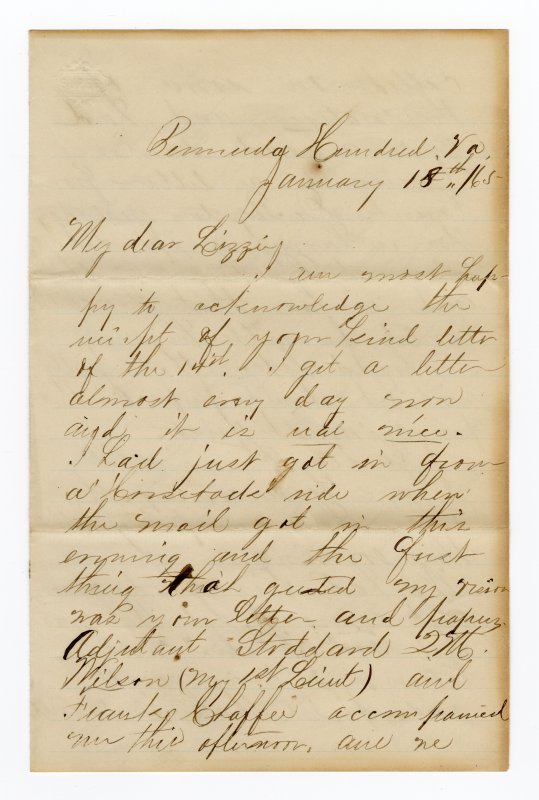 Bermuda Hundred, Va.
January 18th "/65
My dear Lizzie,
I am most hap-
py to acknowledge the
reciept of your kind letter
of the 14st. I get a letter
almost every day now
and it is real nice.
I had just got in from
a horseback ride when
the mail got in this
evening and the first
thing that greeted my vision
was your letter and papers.
Adjutant Stoddard
Wilson (my 1st Lieut) and
Frank Chaffee accompanied
me this afternoon, and we